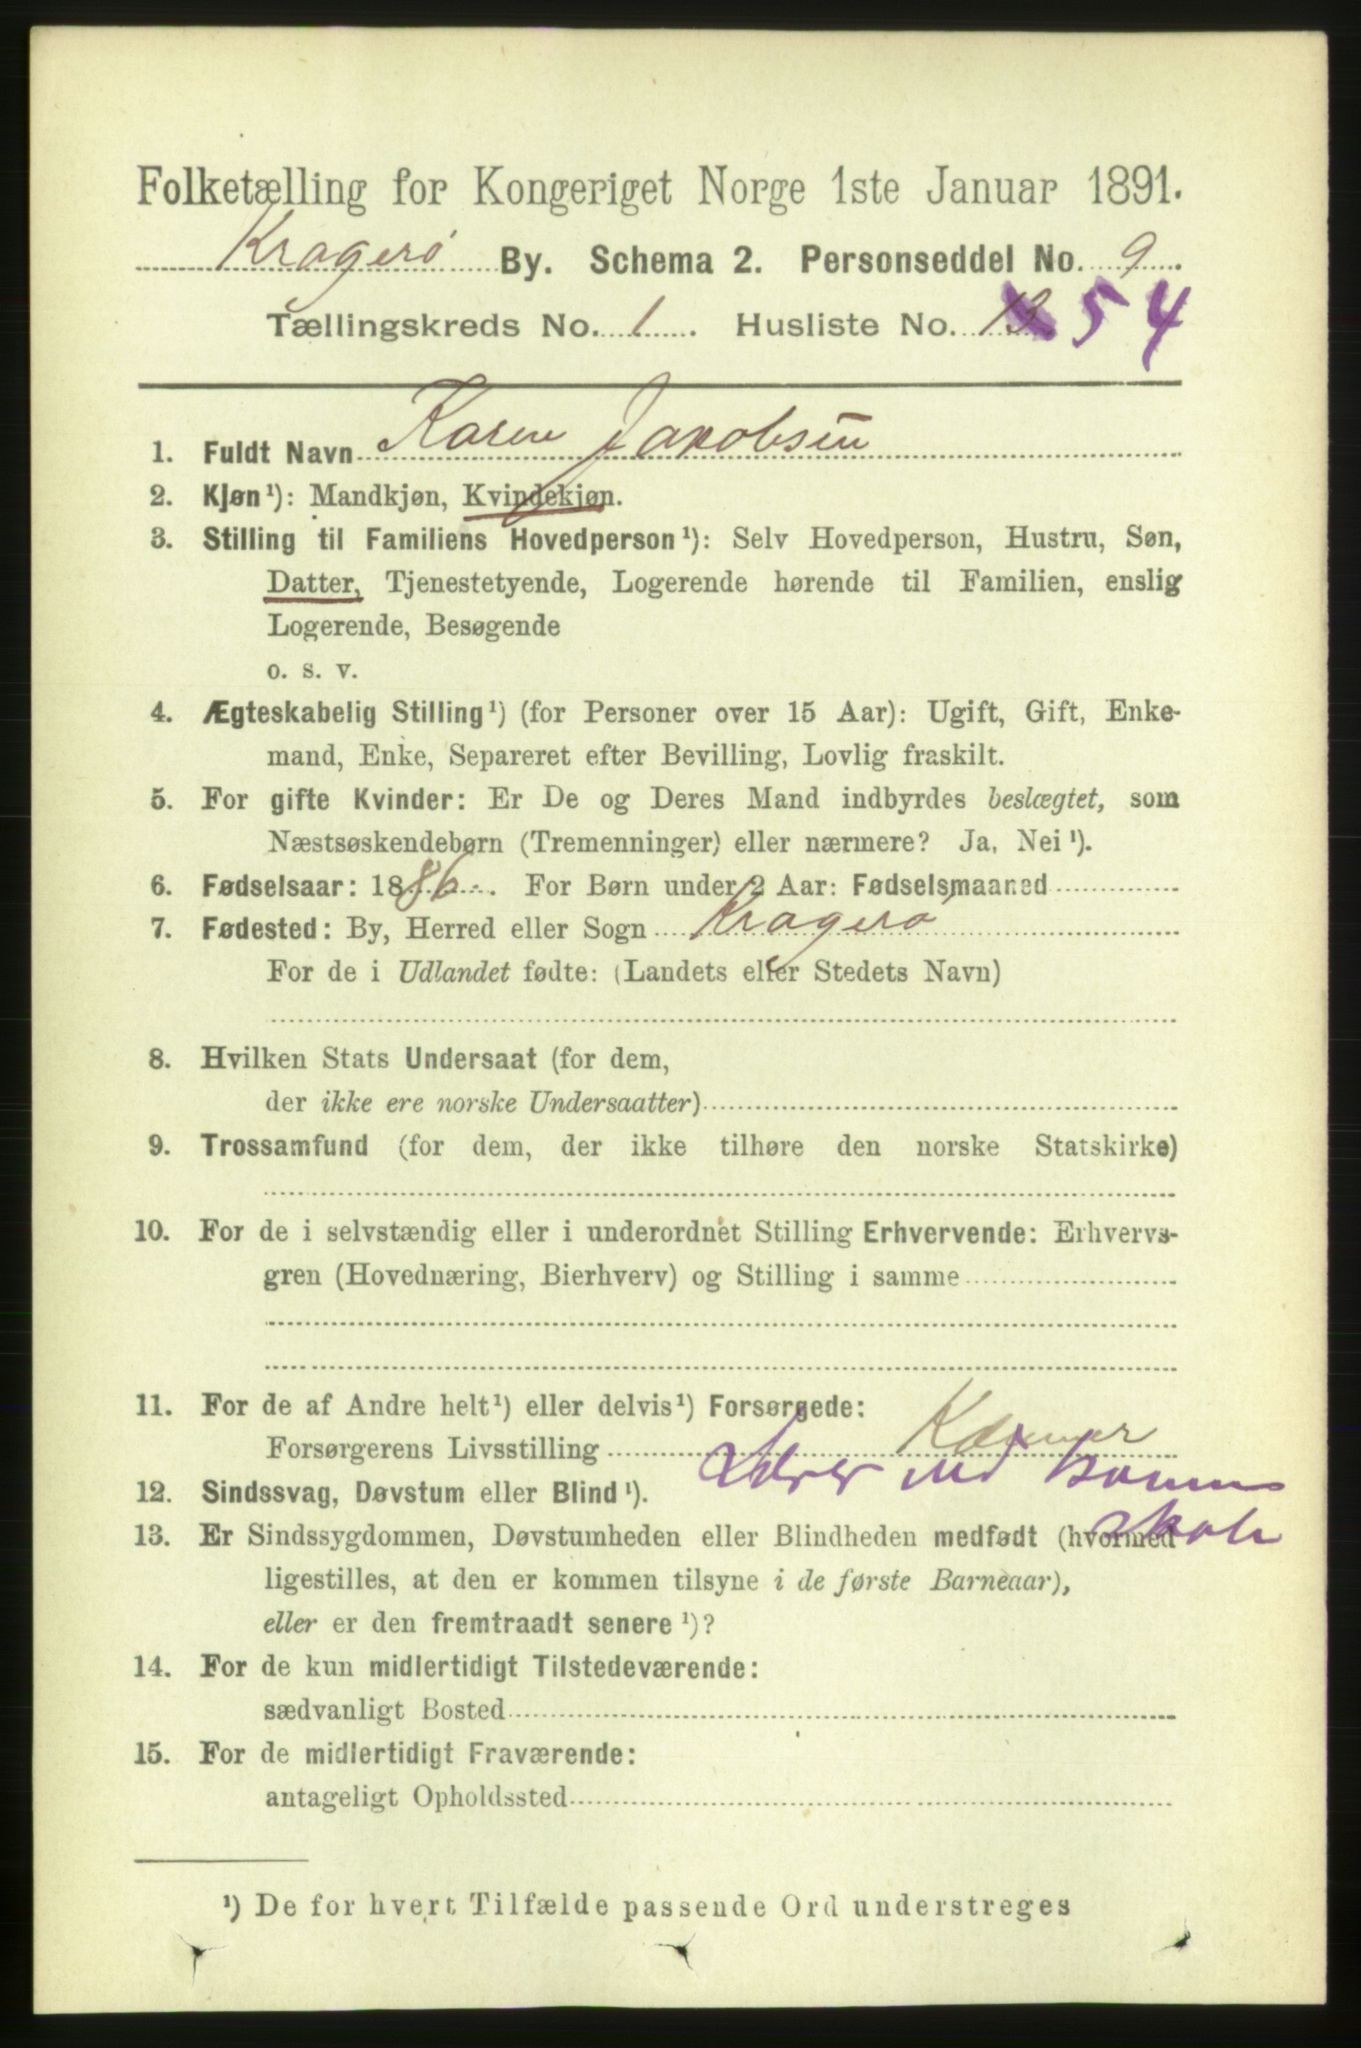 Folketælling for Kongeriget Norge 1ste Januar 1891.
Kragerø By. Schema 2. Personseddel No. 9.
Tællingskreds No. 1. Husliste No. 13 54
1. Fuldt Navn Karen Jakobsen
2. Kjøn¹): Mandkjøn, Kvindekjøn.
3. Stilling til Familiens Hovedperson¹): Selv Hovedperson, Hustru, Søn,
Datter, Tjenestetyende, Logerende hørende til Familien, enslig
Logerende, Besøgende
o. s. v.
4. Ægteskabelig Stilling¹) (for Personer over 15 Aar): Ugift, Gift, Enke-
mand, Enke, Separeret efter Bevilling, Lovlig fraskilt.
5. For gifte Kvinder: Er De og Deres Mand indbyrdes beslægtet, som
Næstsøskendebørn (Tremenninger) eller nærmere? Ja, Nei¹).
6. Fødselsaar: 1886. For Børn under 2 Aar: Fødselsmaaned
7. Fødested: By, Herred eller Sogn Kragerø
For de i Udlandet fødte: (Landets eller Stedets Navn)
8. Hvilken Stats Undersaat (for dem,
der ikke ere norske Undersaatter)
9. Trossamfund (for dem, der ikke tilhøre den norske Statskirke)
10. For de i selvstændig eller i underordnet Stilling Erhvervende: Erhvervs-
gren (Hovednæring, Bierhverv) og Stilling i samme
11. For de af Andre helt¹) eller delvis¹) Forsørgede:
Forsørgerens Livsstilling Kæmner
Lærer ved
12. Sindssvag, Døvstum eller Blind¹).
skole
13. Er Sindssygdommen, Døvstumheden eller Blindheden medfødt (hvormed
ligestilles, at den er kommen tilsyne i de første Barneaar),
eller er den fremtraadt senere¹)?
14. For de kun midlertidigt Tilstedeværende:
sædvanligt Bosted
15. For de midlertidigt Fraværende:
antageligt Opholdssted
¹) De for hvert Tilfælde passende Ord understreges